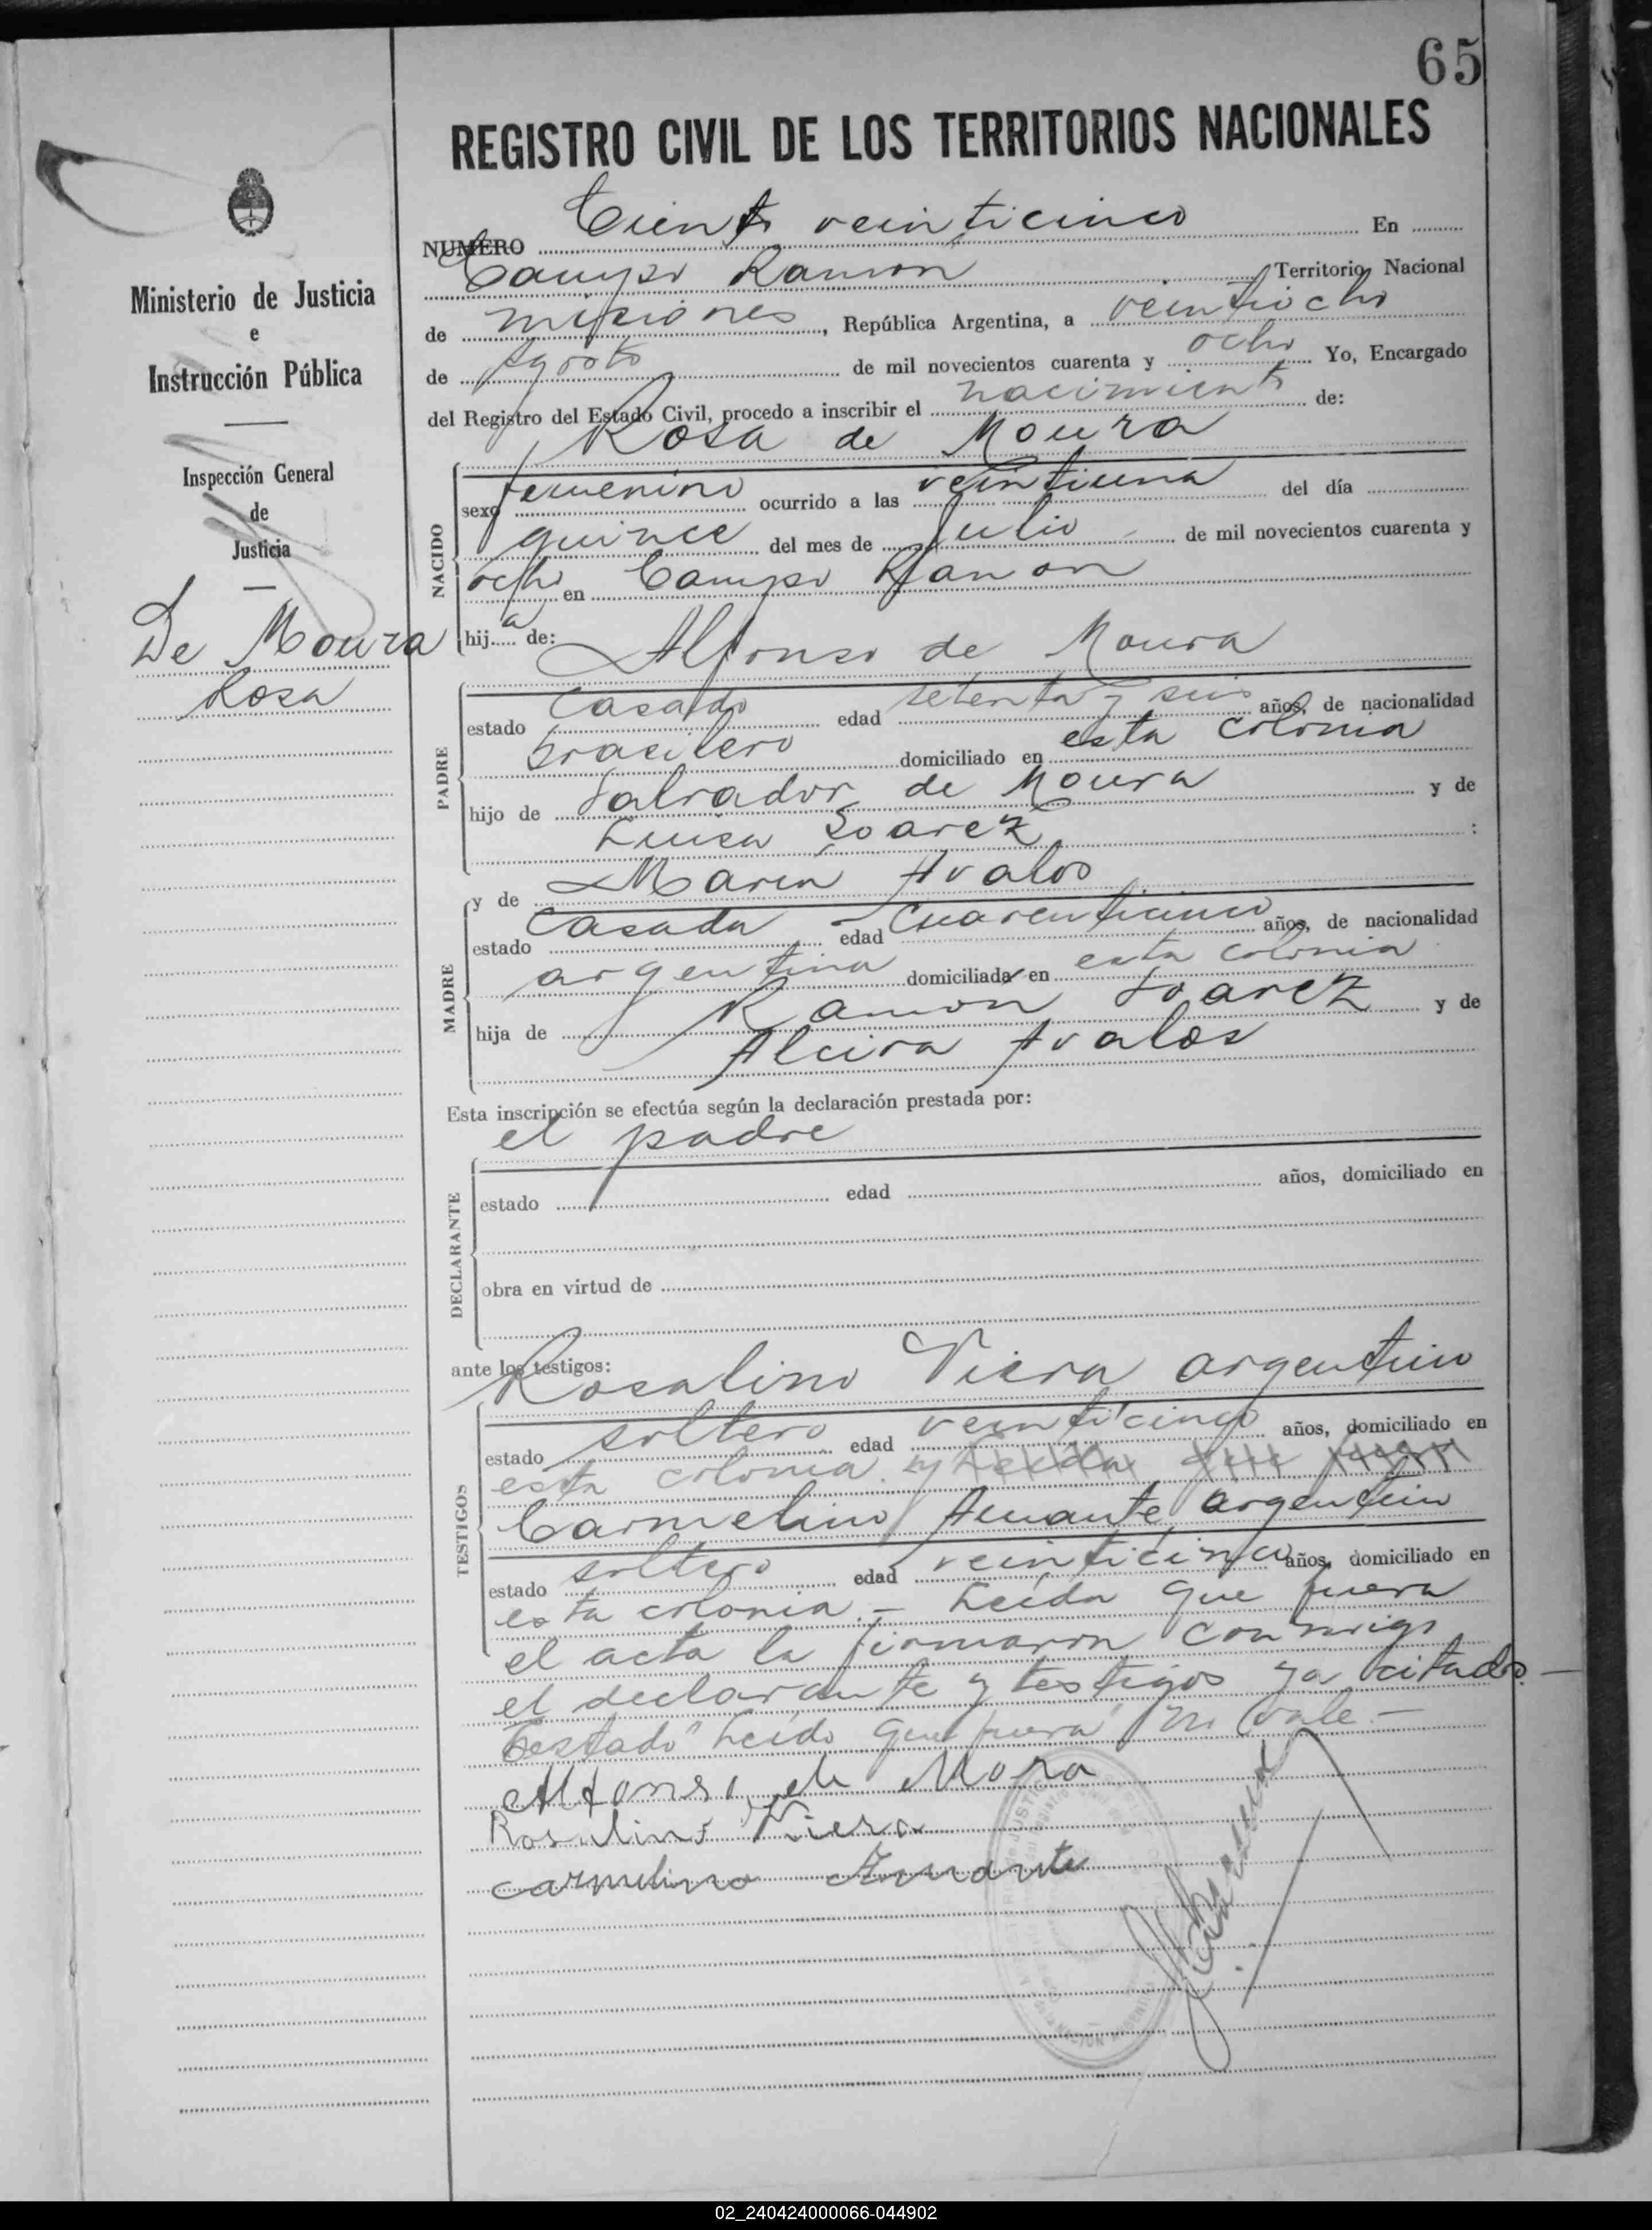 65
REGISTRO CIVIL DE LOS TERRITORIOS NACIONALES
NUMERO Ciento veinticinco En
Campo Ramon Territorio Nacional
de Misiones, República Argentina, a veintiocho
de Agosto de mil novecientos cuarenta y ocho Yo, Encargado
del Registro del Estado Civil, procedo a inscribir el nacimiento de:
Rosa de Moura
Ministerio de Justicia
e
Instrucción Pública
Inspección General
de
Justicia
De Moura
Rosa
NACIDO
sexo femenino ocurrido a las veintiuna del día
quince del mes de Julio de mil novecientos cuarenta y
ocho en Campo Ramon
hija de: Alfonso de Moura
PADRE
estado Casado edad setenta y seis años, de nacionalidad
brasilero domiciliado en esta colonia
hijo de Salvador de Moura y de
Luisa Soarez :
y de Maria Avalos
MADRE
estado Casada edad Cuarenticinco años, de nacionalidad
argentina domiciliada en esta colonia
hija de Ramon Soarez y de
Alcira Avalos
Esta inscripción se efectúa según la declaración prestada por:
el padre
DECLARANTE
estado edad años, domiciliado en
obra en virtud de
ante los testigos: Rosalino Viera argentino
TESTIGOS
estado soltero edad veinticinco años, domiciliado en
esta colonia. y Leída que fuera
Carmelino Amante argentino
estado soltero edad veinticinco años, domiciliado en
esta colonia.- Leída que fuera
el acta la firmaron conmigo
el declarante y testigos ya citados.-
Testado "Leído que fuera" no vale.-
Alfonso de Mora
Rosalino Viera
Carmelino Amante
02_240424000066-044902